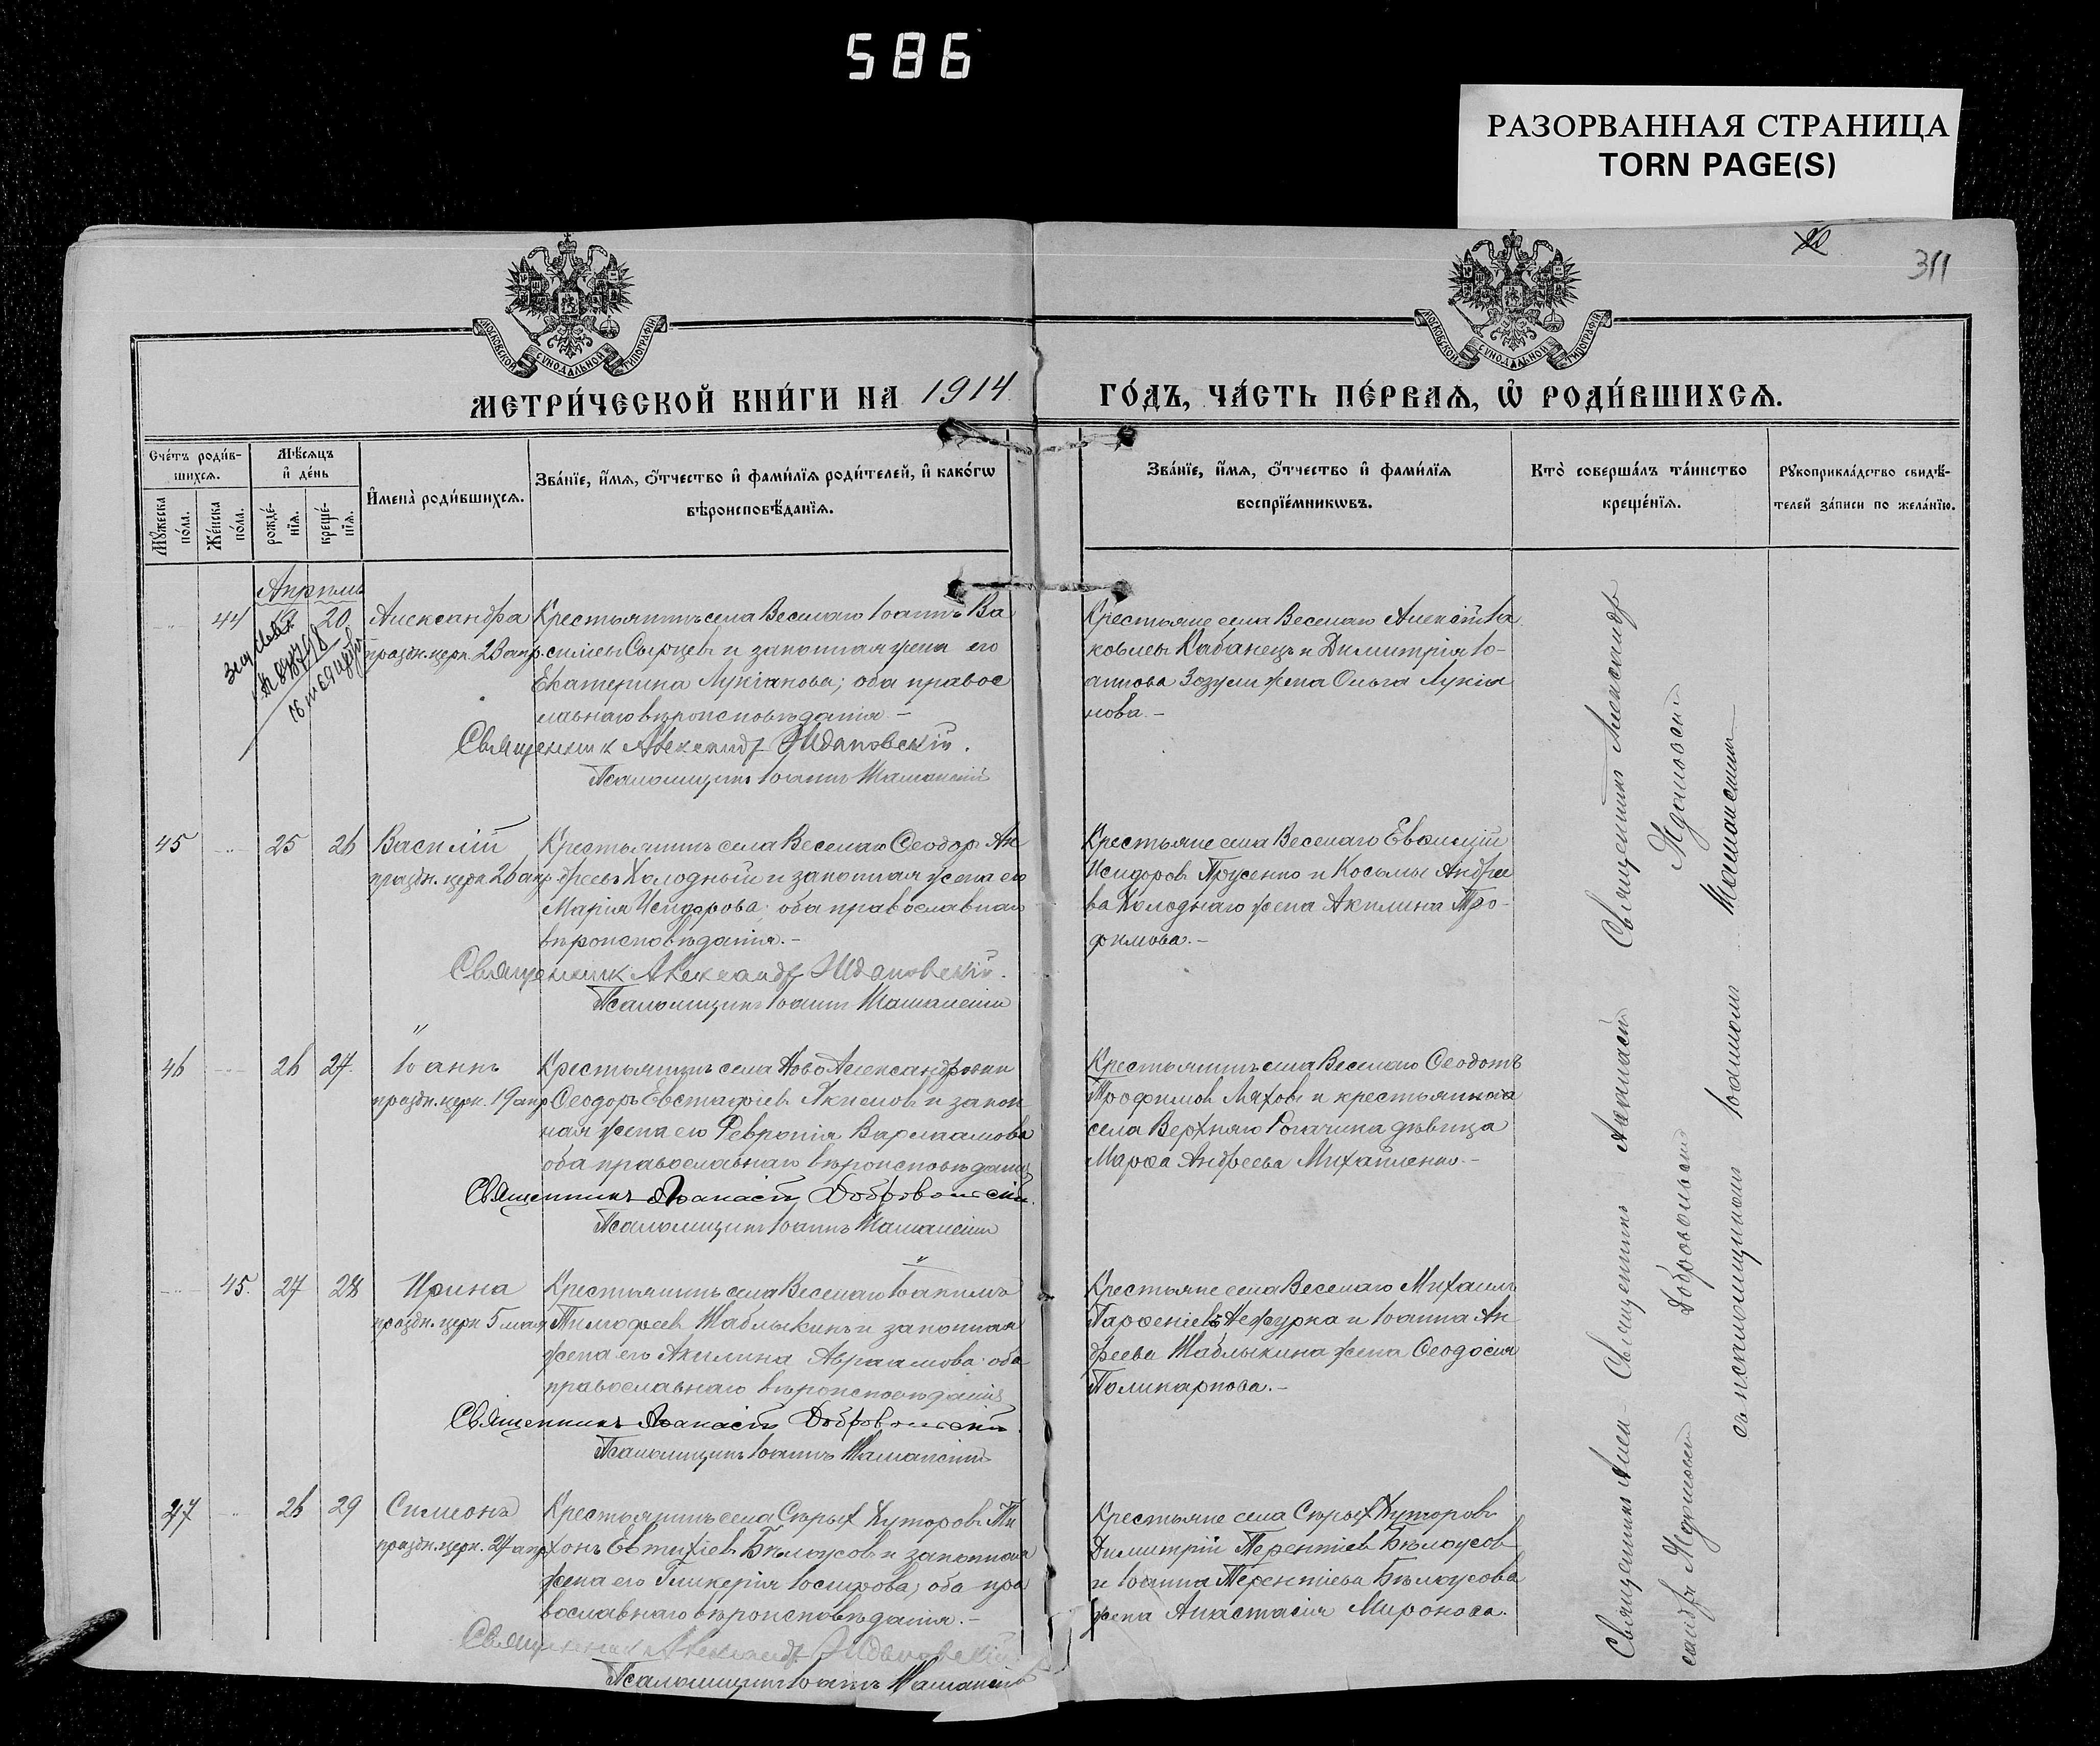 586
РАЗОРВАННАЯ СТРАНИЦА
TORN PAGE(S)
311
МОСКОВСКОЙ СѴНОДАЛЬНОЙ ТИПОГРАФІИ
МОСКОВСКОЙ СѴНОДАЛЬНОЙ ТИПОГРАФІИ
МЕТРИ́ЧЕСКОЙ КНИ́ГИ НА 1914 ГО́ДЪ, ЧА́СТЬ ПЕ́РВАЯ, Ѡ҆ РОДИ́ВШИХСЯ.
Сче́тъ роди́вшихся.
Мѣ́сяцъ и҆ де́нь
И҆мена̀ роди́вшихся.
Зва́нїе, и҆́мя, ѻ҆́тчество и҆ фами́лїя роди́телей, и҆ како́гѡ
вѣроисповѣ́данїя.
Зва́нїе, и҆́мя, ѻ҆́тчество и҆ фами́лїя
воспрїе́мникѡвъ.
Кто̀ соверша́лъ та́инство
креще́нїя.
Рꙋкоприкла́дство свидѣ́-
телей за́писи по жела́нїю.
Мꙋ́жеска по́ла.
Же́нска по́ла.
рожде́-нїя.
креще́-нїя.
Апрѣль
44 20 Александра
праздн. церк. 23 апр.
Крестьянинъ села Веселаго Іоаннъ Ва
сильевъ Сырцевъ и законная жена его
Екатерина Лукіанова; оба правос
лавнаго вѣроисповѣданія –
Священникъ Александр Ждановскій.
Псаломщикъ Іоаннъ Шаманскій
Крестьяне села Веселаго Алексій Іа
ковлевъ Кабанецъ и Димитрія Іо-
аннова Зозули жена Ольга Лукіа
нова. –
45 25 26 Василій
праздн. церк. 26 апр.
Крестьянинъ села Веселаго Ѳеодоръ Ан
дреевъ Холодный и законная жена его
Марія Исидорова; оба православнаго
вѣроисповѣданія. –
Священникъ Александр Ждановскій.
Псаломщикъ Іоаннъ Шаманскій
Крестьяне села Веселаго
Исидоровъ Прусенко и Косьмы Андрее
ва Холоднаго жена Акилина Тро-
фимова. –
46 26 27 Іоаннъ
праздн. церк. 19 апр
Крестьянинъ села Ново Александровки
Ѳеодоръ Евстафіевъ Акимовъ и закон
ная жена его Февронія Варлаамова
оба православнаго вѣроисповѣданія
Священникъ Аѳанасій Добровольскій.
Псаломщикъ Іоаннъ Шаманскій
Крестьянинъ села Веселаго Ѳеодотъ
Трофимовъ Ляховъ и крестьянка
села Верхняго Рогачика дѣвица
Марѳа Андреева Михайленко. –
45. 27 28 Ирина
праздн. церк. 5 мая
Крестьянинъ села Веселаго Іоакимъ
Тимофеевъ Шаблыкинъ и законная
жена его Акилина Авраамова; оба
православнаго вѣроисповѣданія
Священникъ Аѳанасій Добровольскій
Псаломщикъ Іоаннъ Шаманскій
Крестьяне села Веселаго Михаилъ
Парѳеніевъ и Іоанна Ан
дреева Шаблыкина жена Ѳеодосія
Поликарпова. –
47 26 29 Симеонъ
праздн. церк. 27 апр
Крестьянинъ села Сѣрыхъ Хуторовъ Ти
хонъ Евтихіевъ Бѣлоусовъ и законная
жена его Гликерія Іосифова; оба пра
вославнаго вѣроисповѣданія. –
Священникъ Александр Ждановскій
Псаломщикъ Іоаннъ Шаманскій
Крестьяне села Сѣрыхъ Хуторовъ
Димитрій Терентіевъ Бѣлоусовъ
и Іоанна Терентіева Бѣлоусова
жена Анастасія Миронова.
Священникъ Алек- Священникъ Аѳанасій Священникъ Александр
Добровольскій Ждановскій
съ псаломщикомъ Іоанномъ Шаманскимъ